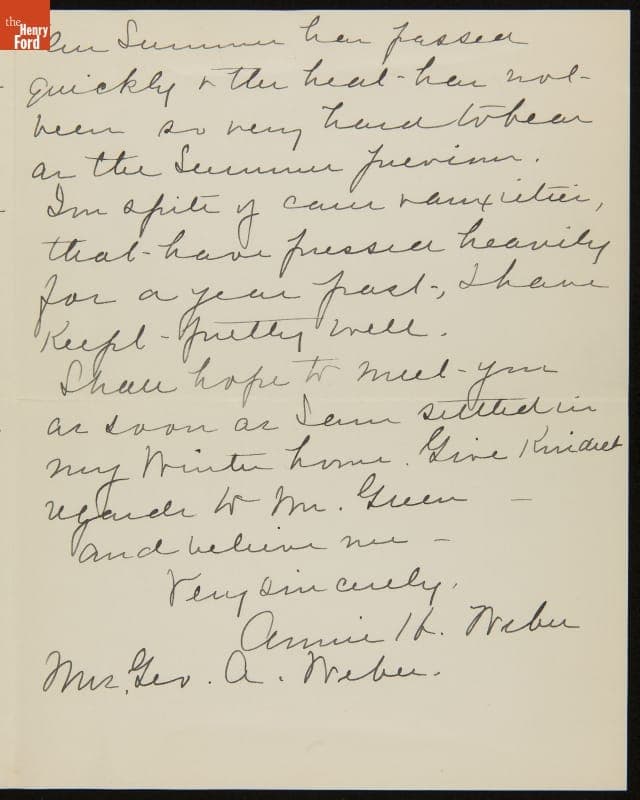 the
Henry
Ford
Summer has passed
quickly & the heat has not
been so very hard to bear
as the Summer previous.
In spite of cares & anxieties,
that have pressed heavily
for a year past, I have
Kept pretty well.
Shall hope to meet you
as soon as I am settled in
my Winter home. Give Kindest
regards to Mr. Green
and believe me –
Very sincerely,
Annie H. Weber
Mrs. Geo. A. Weber.